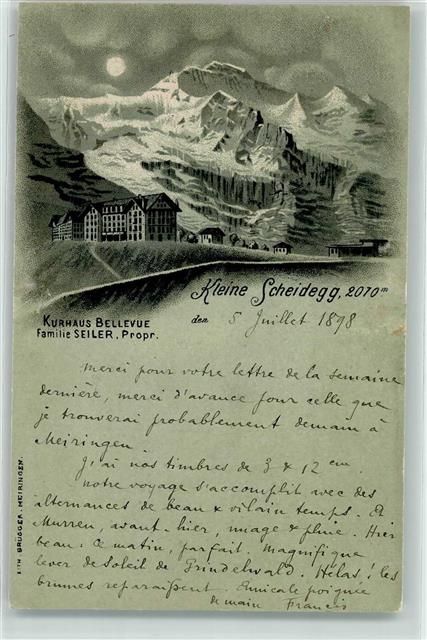 Kleine Scheidegg, 2070 m
KURHAUS BELLEVUE
Familie SEILER, Propr.
den 5 Juillet 1898
Merci pour votre lettre de la semaine
dernière, merci d'avance pour celle que
je trouverai probablement demain à
Meiringen.
J'ai nos timbres de 3 & 12 cm.
Notre voyage s'accomplit avec des
alternances de beau & vilain temps. A
Murren, avant-hier, nuage & pluie. Hier
beau; ce matin, parfait. Magnifique
lever de soleil de Grindelwald. Hélas! les
brumes reparaissent. Amicale poignée
de main Francis
LITH. BRÜGGER, MEIRINGEN.